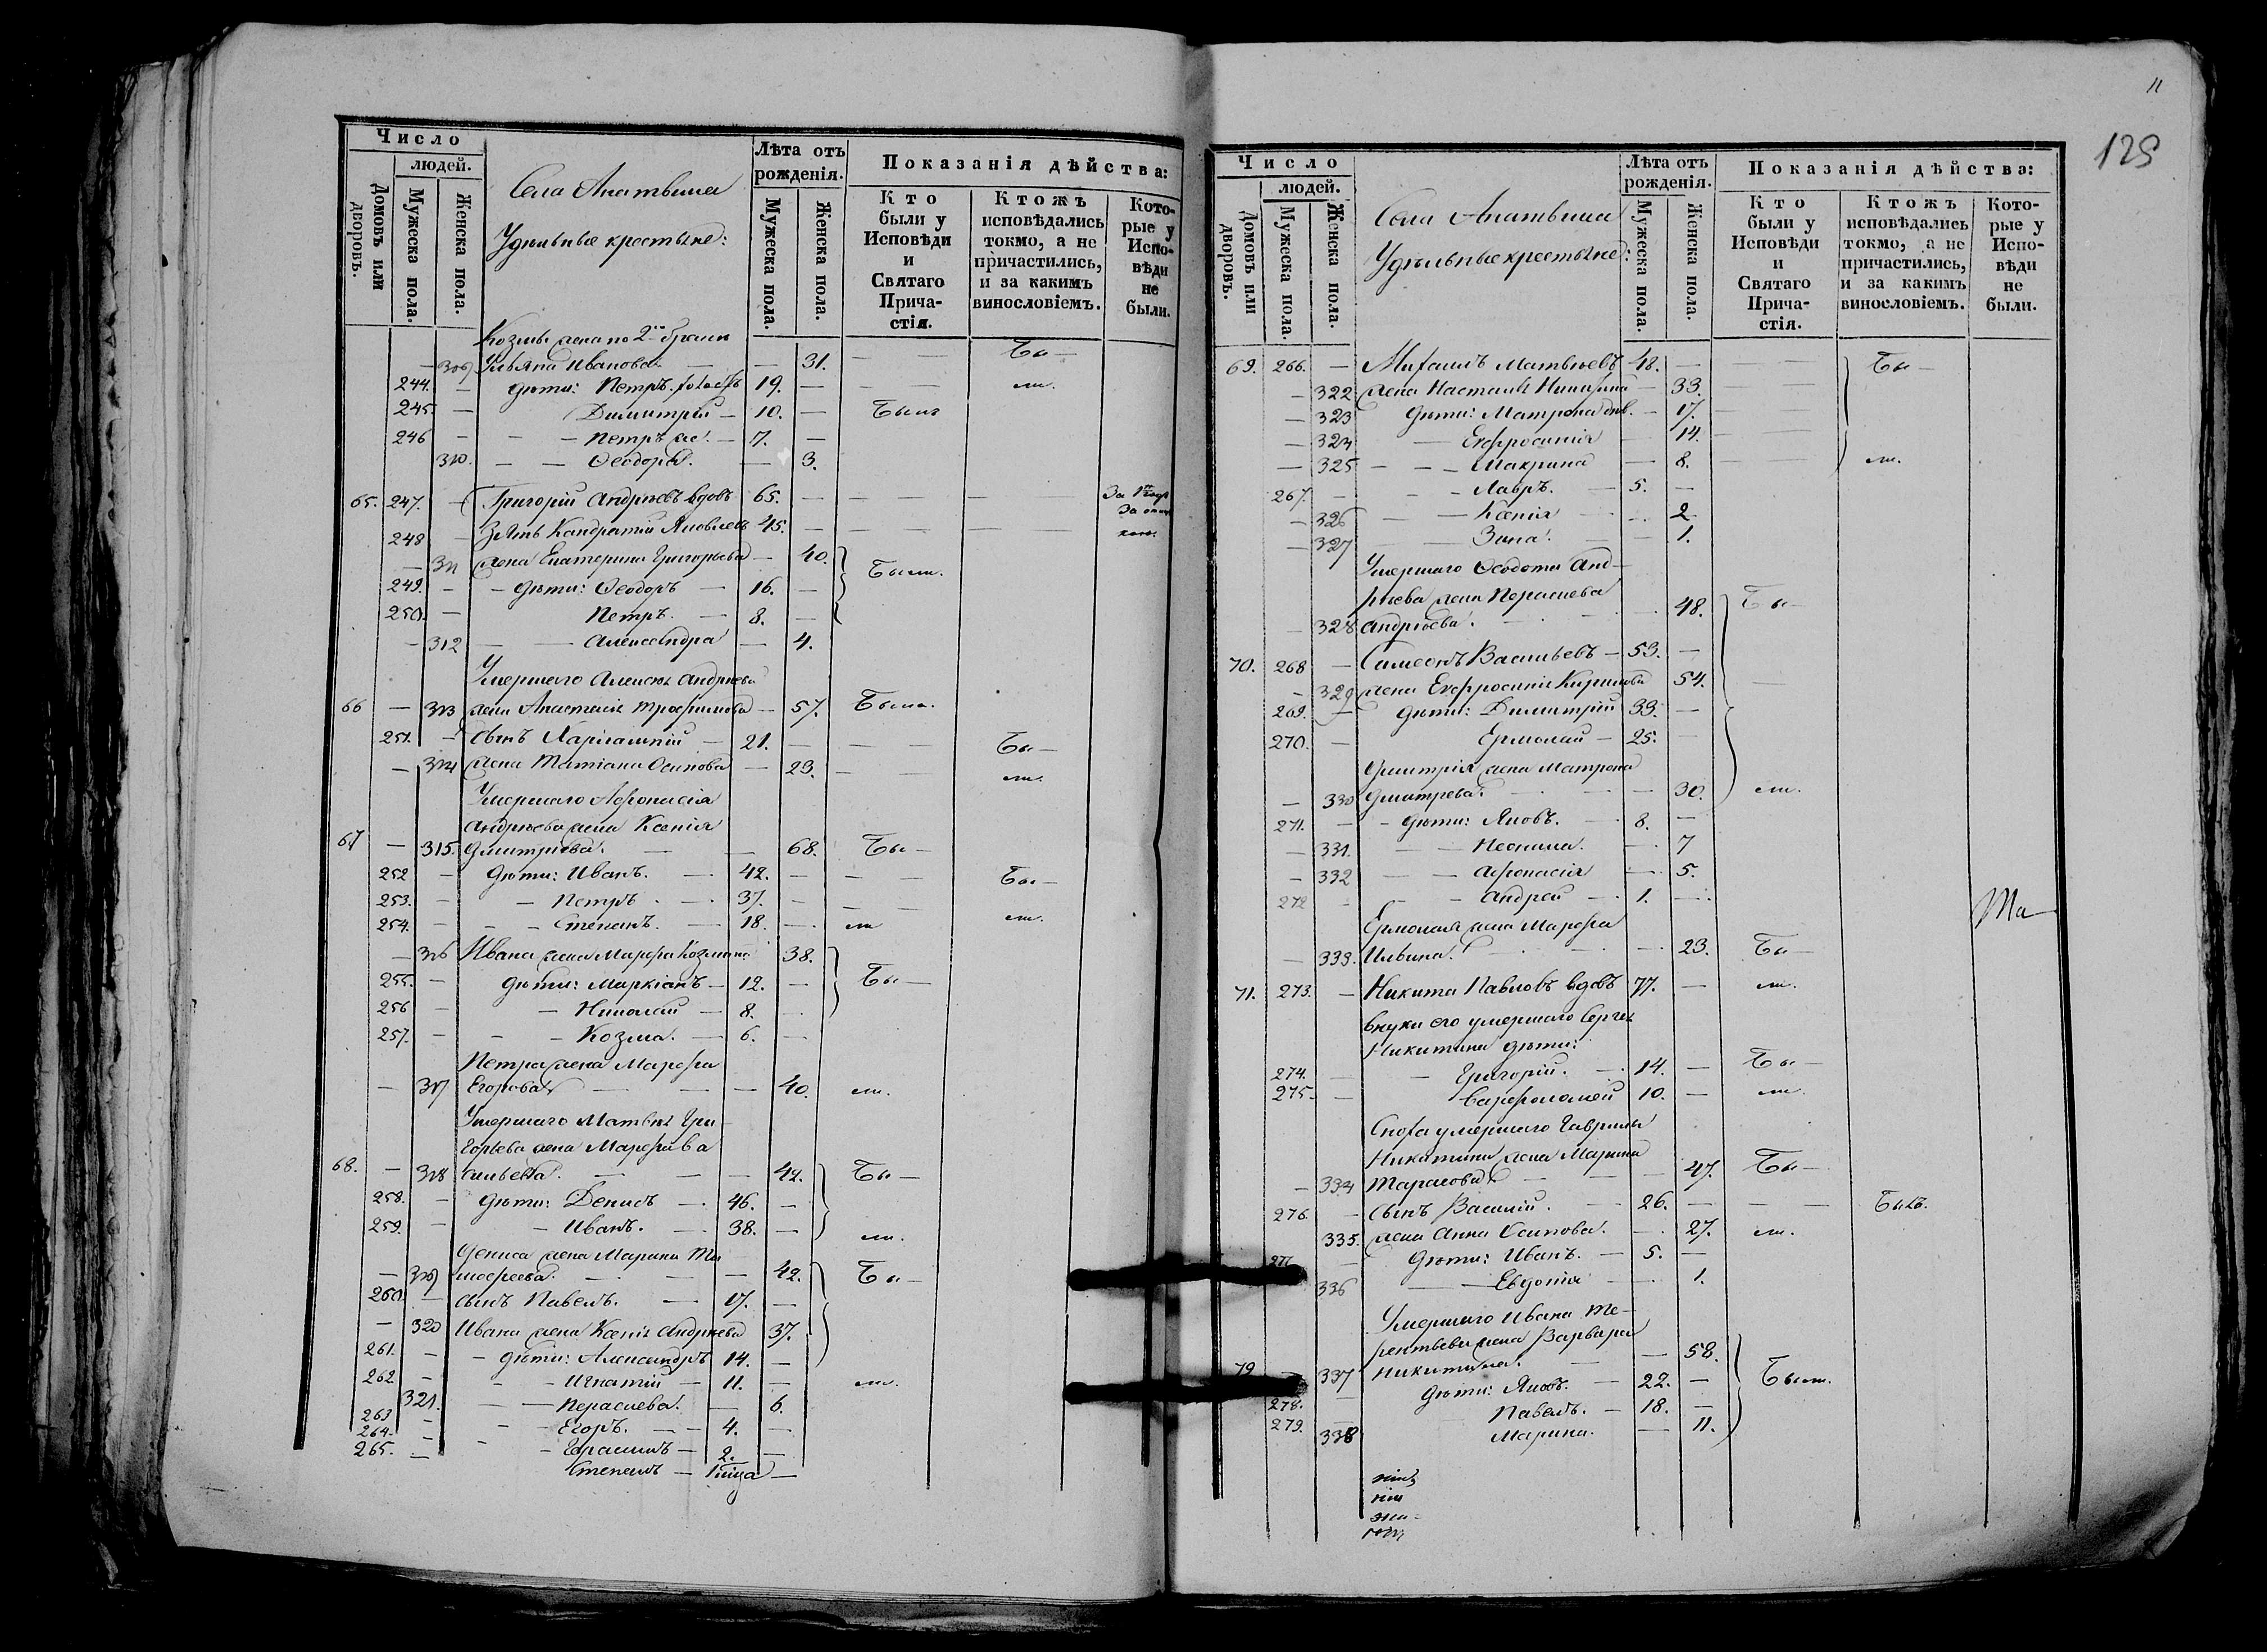 Число
людей.
Домовъ или дворовъ.
Мужеска пола.
Женска пола.
Села Апатьина
Удѣльные крестьяне:
Лѣта отъ рожденія.
Мужеска пола.
Женска пола.
Показанія дѣйства:
Кто были у Исповѣди и Святаго Прича-стія.
Ктожъ исповѣдались токмо, а не причастились, и за какимъ винословіемъ.
Кото-рые у Испо-вѣди не были.
Козмы жена по 2мъ бракѣ
— 309 Ульяна Иванова — 31. — Бы —
244. — дѣти: Петръ холостъ 19. — ли.
245. — Димитрій — 10. — Былъ
246 — Петръ — 7. —
310. — Ѳеодора. — 3.
65. 247. — Григорій Андреевъ вдовъ 65. —
248 — Зять Кандратій Яковлевъ 45. —
— 311 жена Екатерина Григорьева — 40. Были.
249. — дѣти: Ѳеодоръ — 16. —
250. — Петръ. — 8. —
— 312 — Александра — 4.
Умершаго Алексѣя Андреева
66 — 313 жена Анастасія Трофимова — 57. Была.
251. — сынъ Харлампій — 21. — Бы —
— 314 жена Татіана Осипова — 23. — ли.
Умершаго Афонасія
Андреева жена Ксенія
67 — 315. Дмитріева. — 68. Бы —
252 — дѣти: Иванъ. — 42. — Бы —
253. — Петръ — 37. —
254. — Степанъ. — 18. — ли ли.
— 316 Ивана жена Марфа Козмина 38.
255. — дѣти: Маркіанъ — 12. — Бы —
256 — Николай — 8. —
257. — Козма. — 6. —
Петра жена Марфа
— 317 Егорова. — 40. ли.
Умершаго Матвѣя Гри-
горьева жена Марфа Ва
68. — 318 сильева. — 42. Бы —
258. — дѣти: Денисъ — 46. —
259. — Иванъ. — 38. — ли.
Дениса жена Марина Ти
— 319 мофеева. — 42. Бы —
260. — сынъ Павелъ. — 17. —
— 320 Ивана жена Ксенія Андреева 37.
261. — дѣти: Александръ 14. —
262 — Игнатій — 11. — ли.
321. — Параскева. — 6.
263 — Егоръ. — 4. —
264. — Герасимъ — 2. —
265. — Степанъ —
11
129
Число
людей.
Домовъ или дворовъ.
Мужеска пола.
Женска пола.
Села Апатьина
Удѣльные крестьяне:
Лѣта отъ рожденія.
Мужеска пола.
Женска пола.
Показанія дѣйства:
Кто были у Исповѣди и Святаго Прича-стія.
Ктожъ исповѣдались токмо, а не причастились, и за какимъ винословіемъ.
Кото-рые у Испо-вѣди не были.
69. 266. — Михаилъ Матвѣевъ 48. — Бы —
— 322 жена Настасія Никитина — 33.
— 323 дѣти: Матрона — 17.
— 324 — Евфросинія — 14.
— 325 — Макрина — 8. — ли.
267. — Лавръ. — 5. —
— 326 — Ксенія — 2
— 327 — Зина. — 1.
Умершаго Ѳеодота Анд-
реева жена Параскева
— 328 Андреева. — 48. Бы —
70. 268 — Симеонъ Васильевъ — 53. —
— 329 жена Евфросинія Кирилова 54. —
269. — дѣти: Димитрій 33. —
270. — Ермолай — 25. —
Димитрія жена Матрона
— 330 Дмитрева. — 30. ли.
271. — дѣти: Яковъ. — 8. —
— 331. — Неонила. — 7
— 332 — Афонасія — 5.
272 — Андрей — 1. —
Ермолая жена Марфа
— 333. Ильина. — 23. Бы —
71. 273. — Никита Павловъ вдовъ 77. — ли.
внуки его умершаго Сергея
Никитина дѣти:
274. — Григорій. — 14. — Бы —
275. — Варфоломей 10. — ли.
Сноха умершаго Гаврилы
Никитина жена Марина
— 334 Тарасова. — 47. Бы —
276. — сынъ Василій. — 26. — Былъ.
335. жена Анна Осипова. — 27. ли.
277 — дѣти: Иванъ. — 5. —
336 — Евдокія — 1.
Умершаго Ивана Те-
рентьева жена Варвара
72 — 337 Никитина. — 58.
278. — дѣти: Яковъ. — 22. — Были.
279. — Павелъ. — 18. —
338 Марина. — 11.